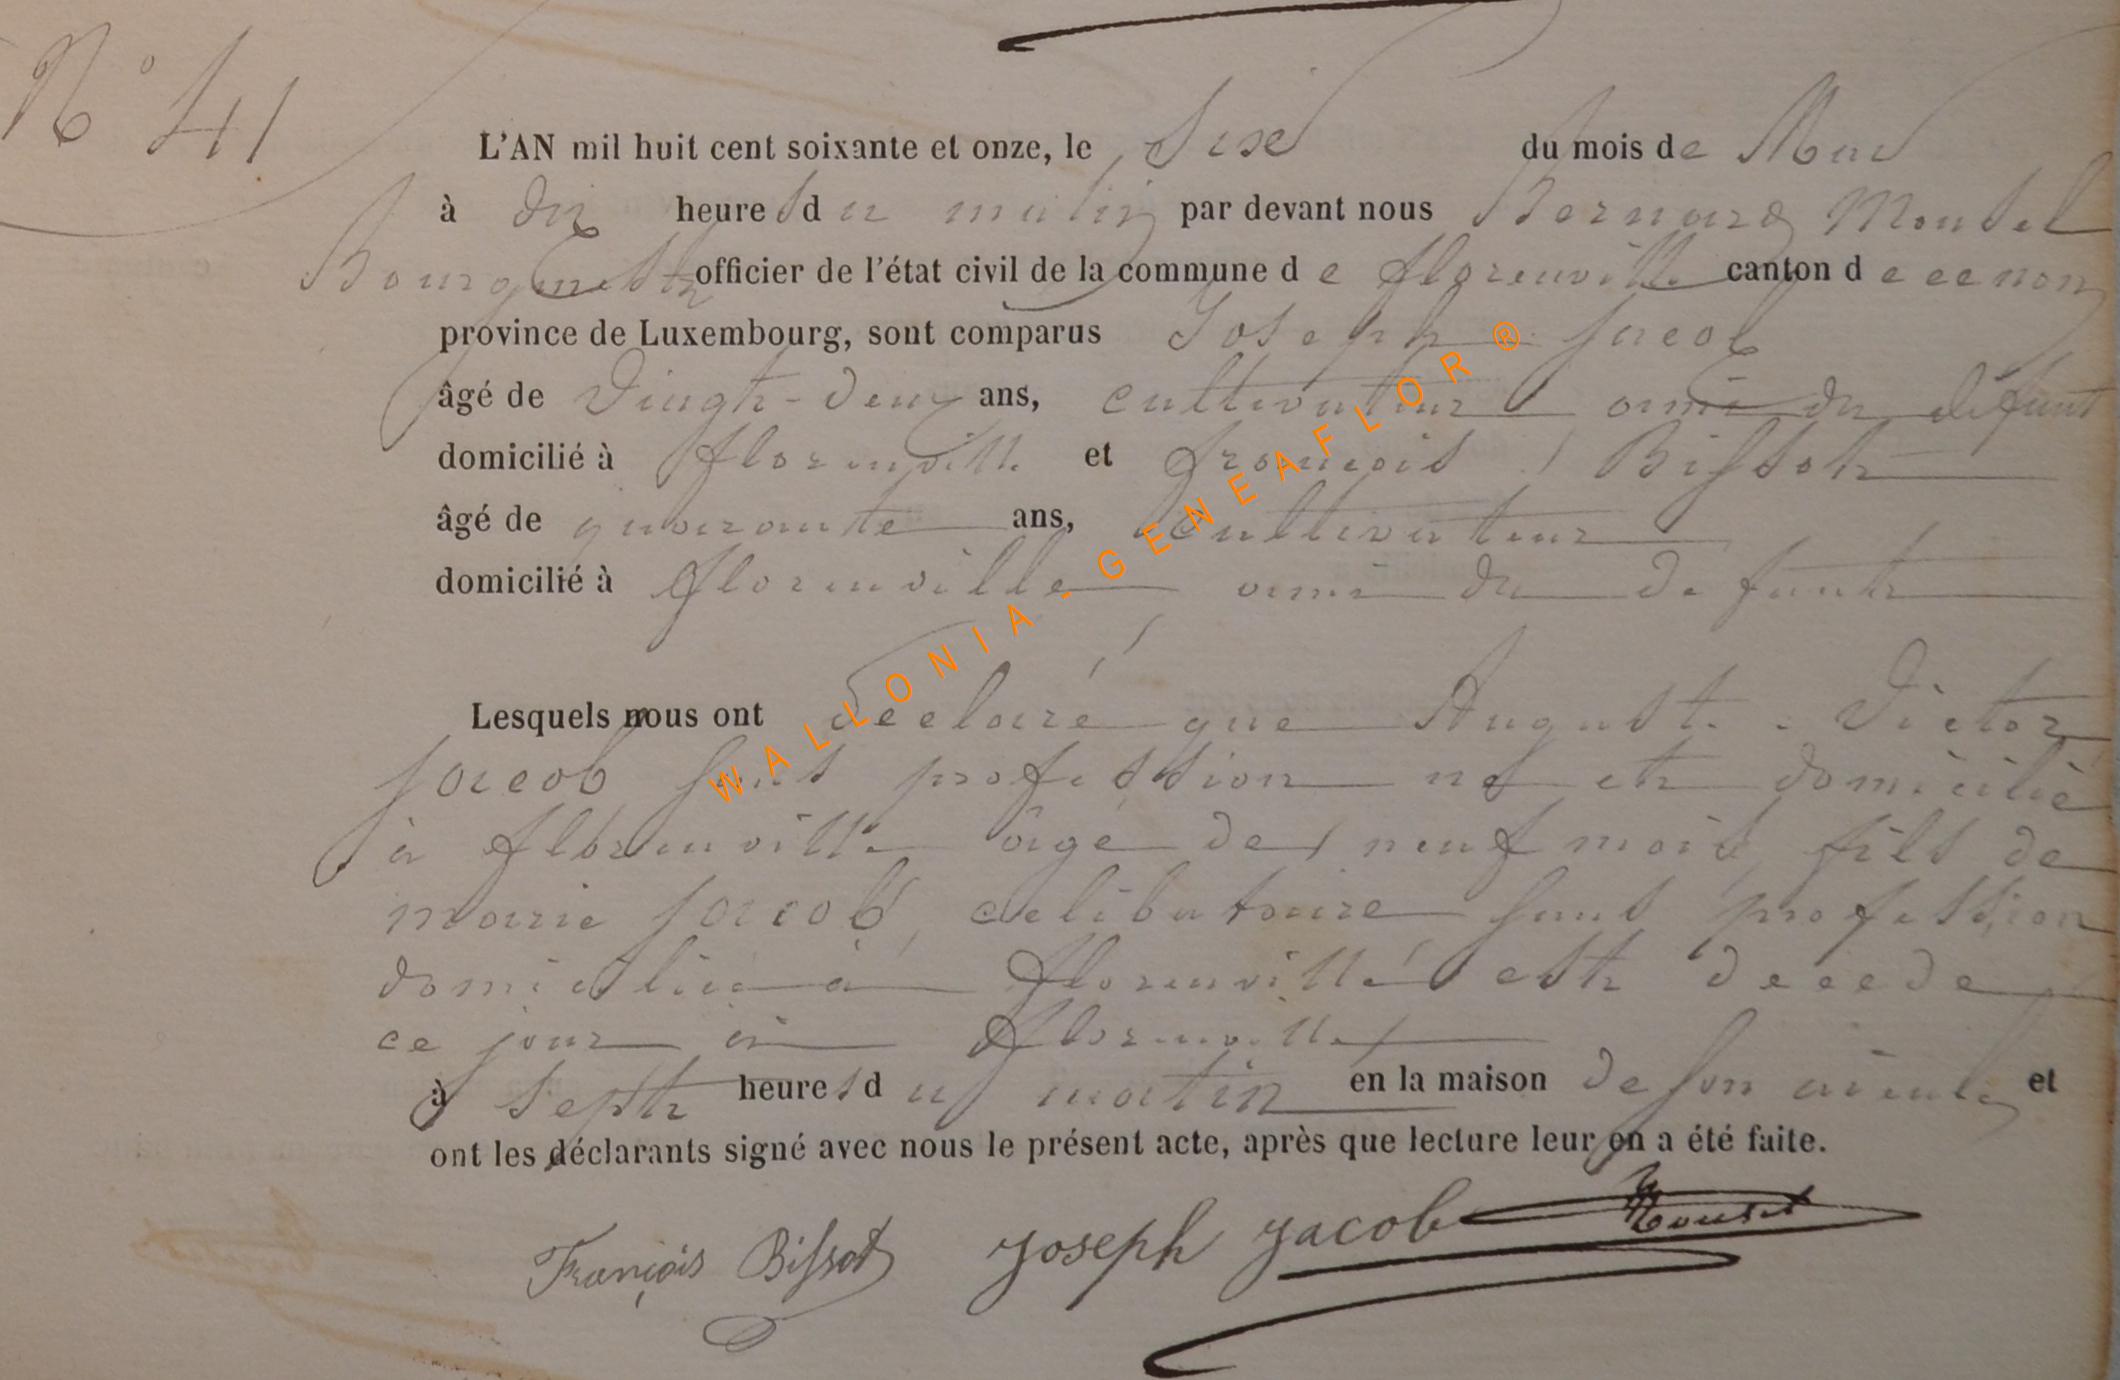 N° 41
L'AN mil huit cent soixante et onze, le Six du mois de
à dix heures du matin par devant nous Bernard Mousel
Bourgmestre officier de l'état civil de la commune de florenville canton de ce nom
province de Luxembourg, sont comparus Joseph Jacob
âgé de vingt-deux ans, cultivateur ami du défunt
domicilié à florenville et françois Bissot
âgé de quarante ans, cultivateur
domicilié à florenville ami du defunt
Lesquels nous ont declaré que August. Victor
Jacob sans profession né et domicilié
à florenville âgé de neuf mois, fils de
marie Jacob, celibataire sans profession
domiciliée à florenville est decede
ce jour à florenville
à sept heures du matin en la maison de son aieule et
ont les déclarants signé avec nous le présent acte, après que lecture leur en a été faite.
François Bissot Joseph Jacob Mousel
WALLONIA - GENEAFLOR ®